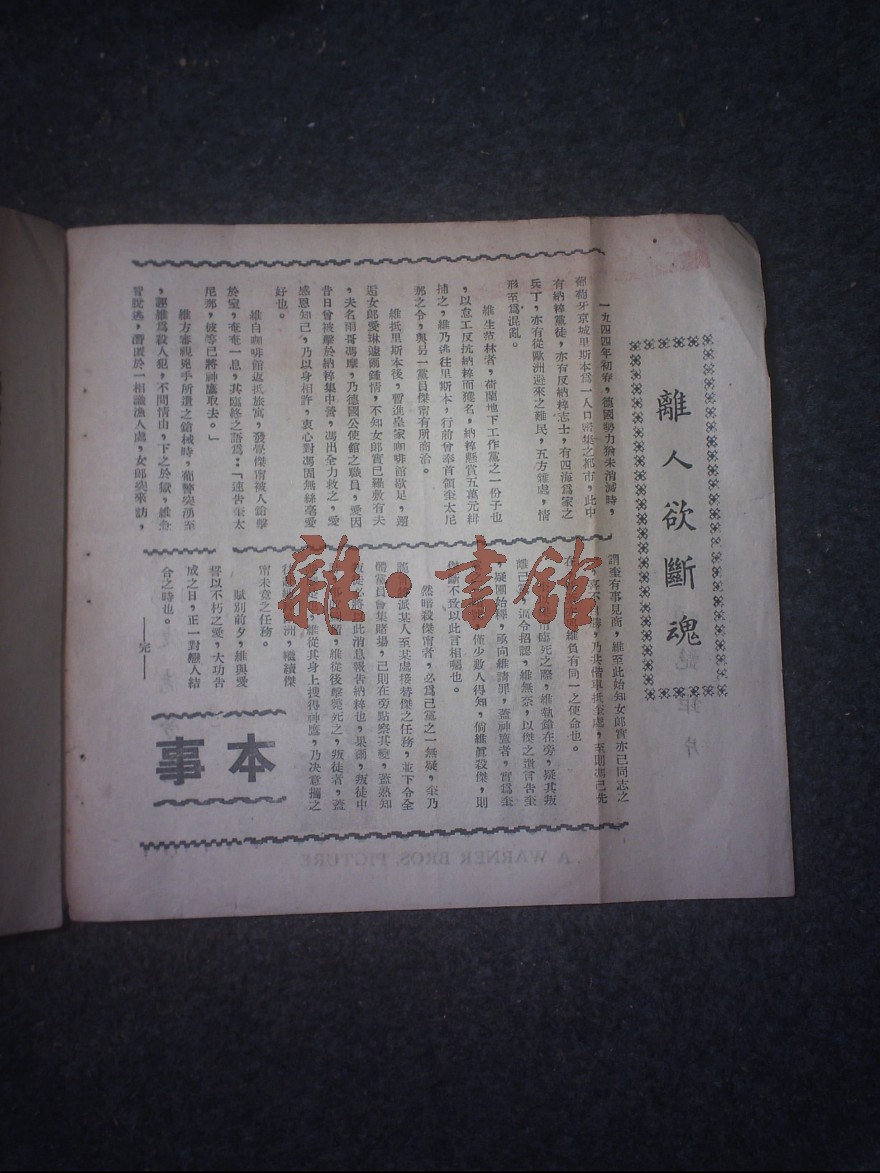 離人欲斷魂
一九四四年初春，德國勢力猶未消滅時，
葡萄牙京城里斯本為一人口密集之都市，此中
有納粹黨徒，亦有反納粹志士，有四海為家之
兵丁，亦有從歐洲逃來之難民，五方雜處，情
形至為混亂。
維生范林者，荷蘭地下工作黨之一份子也
，以怠工反抗納粹而獲名，納粹懸賞五萬元緝
捕之，維乃逃往里斯本，行前曾奉首領奎太尼
郭之令，與另一黨員傑甯有所商洽。
維抵里斯本後，暫進皇家咖啡館歇足，邂
逅女郎愛琳遽爾鍾情，不知女郎實已羅敷有夫
，夫名雨哥馮摩，乃德國公使館之職員，愛因
昔日曾被擊於納粹集中營，馮出全力救之，愛
感恩知己，乃以身相許，衷心對馮固無絲毫愛
好也。
維自咖啡館返抵旅寓，發覺傑甯被人鎗擊
於室，奄奄一息，其臨終之語為：「速告奎太
尼郭，彼等已將神鷹取去。」
維方審視兇手所遺之鎗械時，葡警突湧至
，誣維為殺人犯，不問情由，下之於獄，維急
冒說逃，潛匿於一相識漁人處，女郎突來訪，
謂奎有事見商，維至此始知女郎實亦己同志之
，喜不自勝，乃共偕車抵奎處，至則馮已先
在 維負有同一之使命也。
臨死之際，維執鎗在旁，疑其叛
離己 逼令招認，維無奈，以傑之遺言告奎
疑團始釋，亟向維請罪，蓋神鷹者，實為奎
僅少數人得知，倘維真殺傑，則
斷不致以此言相囑也。
然暗殺傑甯者，必為己黨之一無疑，奎乃
派某人至某處接替傑之任務，並下令全
體黨員會集賭場，己則在旁點察其變，蓋熟知
叛徒必將以此消息報告納粹也，果爾，叛徒中
維從後擊斃死之，叛徒者，蓋
維從其身上搜得神鷹，乃決意攜之
歐洲，繼續傑
甯未竟之任務。
賦別前夕，維與愛
誓以不朽之愛，大功告
成之日，正一對戀人結
合之時也。
——完——
本事
A WARNER BROS. PICTURE
雜·書館